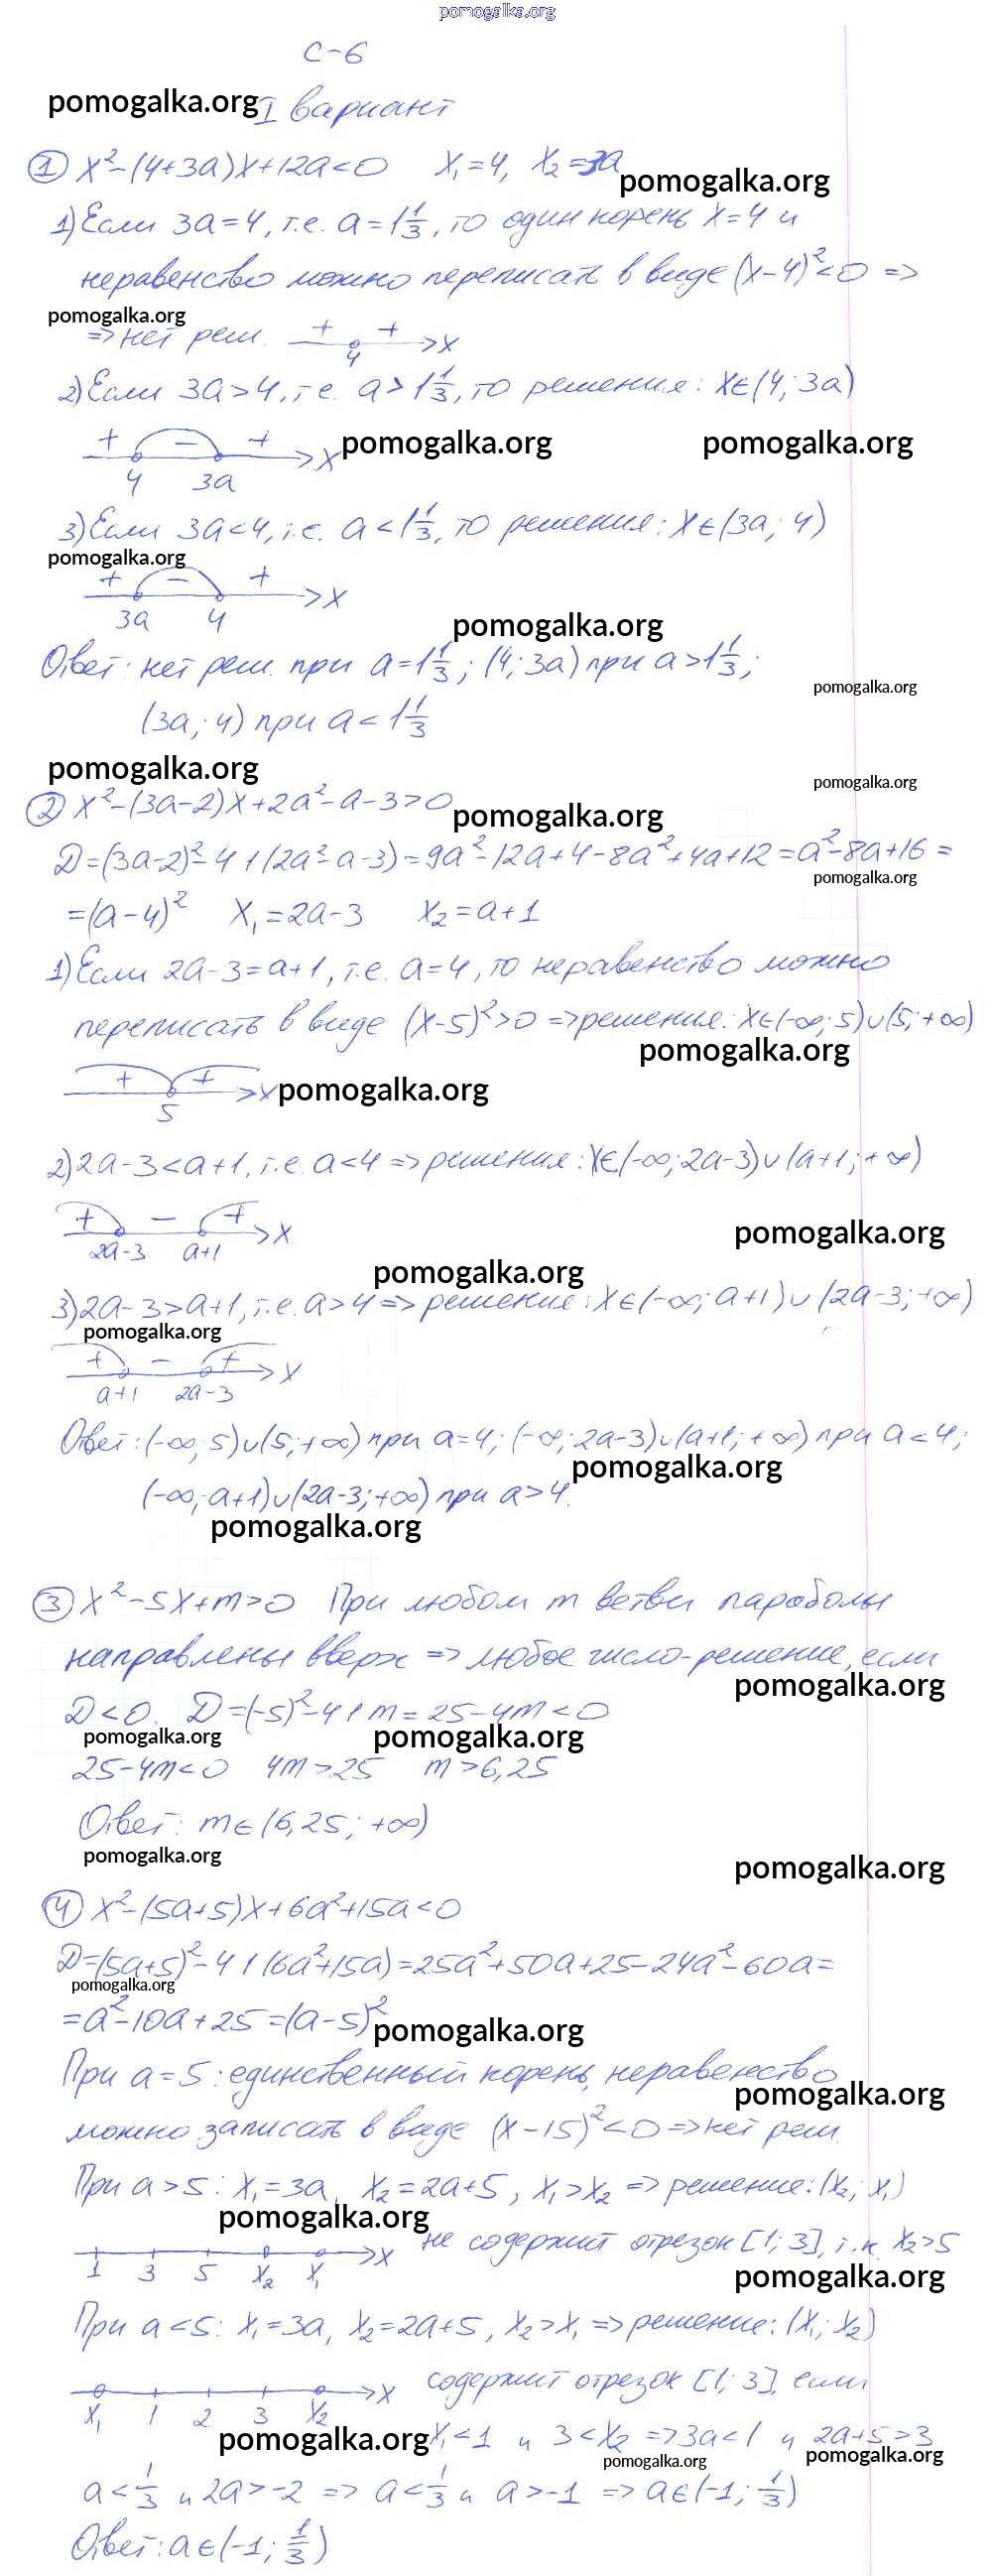 pomogalka.org
С-6
pomogalka.org I вариант
① x²-(4+3a)x+12a<0 x₁=4, x₂=3a
pomogalka.org
1) Если 3a=4, т.е. a=1 1/3, то один корень x=4 и
неравенство можно переписать в виде (x-4)²<0 =>
pomogalka.org
=> нет реш. + + x
4
2) Если 3a>4, т.е. a>1 1/3, то решения: x∈(4; 3a)
+ - + x pomogalka.org pomogalka.org
4 3a
3) Если 3a<4, т.е. a<1 1/3, то решения: x∈(3a; 4)
pomogalka.org
+ - + x
3a 4
pomogalka.org
Ответ: нет реш. при a=1 1/3; (4; 3a) при a>1 1/3;
pomogalka.org
(3a; 4) при a<1 1/3
pomogalka.org pomogalka.org
② x²-(3a-2)x+2a²-a-3>0
pomogalka.org
D=(3a-2)²-4·1·(2a²-a-3)=9a²-12a+4-8a²+4a+12=a²-8a+16=
pomogalka.org
=(a-4)² x₁=2a-3 x₂=a+1
1) Если 2a-3=a+1, т.е. a=4, то неравенство можно
переписать в виде (x-5)²>0 => решения: x∈(-∞; 5)∪(5; +∞)
pomogalka.org
+ + x pomogalka.org
5
2) 2a-3<a+1, т.е. a<4 => решения: x∈(-∞; 2a-3)∪(a+1; +∞)
+ - + x pomogalka.org
2a-3 a+1
pomogalka.org
3) 2a-3>a+1, т.е. a>4 => решения: x∈(-∞; a+1)∪(2a-3; +∞)
pomogalka.org
+ - + x
a+1 2a-3
Ответ: (-∞; 5)∪(5; +∞) при a=4; (-∞; 2a-3)∪(a+1; +∞) при a<4;
pomogalka.org
(-∞; a+1)∪(2a-3; +∞) при a>4.
pomogalka.org
③ x²-5x+m>0 При любом m ветви параболы
направлены вверх => любое число-решение, если
pomogalka.org
D<0. D=(-5)²-4·1·m=25-4m<0
pomogalka.org pomogalka.org
25-4m<0 4m>25 m>6,25
Ответ: m∈(6,25; +∞)
pomogalka.org pomogalka.org
④ x²-(5a+5)x+6a²+15a<0
D=(5a+5)²-4·1·(6a²+15a)=25a²+50a+25-24a²-60a=
pomogalka.org
=a²-10a+25=(a-5)²
pomogalka.org
При a=5: единственный корень, неравенство
pomogalka.org
можно записать в виде (x-15)²<0 => нет реш.
При a>5: x₁=3a, x₂=2a+5, x₁>x₂ => решение: (x₂; x₁)
pomogalka.org
x не содержит отрезок [1; 3], т.к. x₂>5
1 3 5 x₂ x₁ pomogalka.org
При a<5: x₁=3a, x₂=2a+5, x₂>x₁ => решение: (x₁; x₂)
x содержит отрезок [1; 3], если
x₁ 1 2 3 x₂
pomogalka.org x₁<1 и 3<x₂ => 3a<1 и 2a+5>3
pomogalka.org pomogalka.org
a<1/3 и 2a>-2 => a<1/3 и a>-1 => a∈(-1; 1/3)
Ответ: a∈(-1; 1/3)